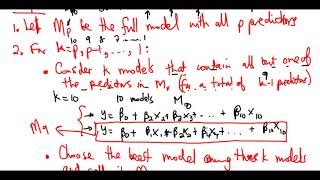 1. Let Mp be the full model with all p predictors
10 9 8 7 ..... 1
2. For k = p, p-1, ...., 1:
• Consider k models that contain all but one of
the predictors in Mk (for a total of k-1 predictors)
9
k = 10 10 models M10
→ y = β0 + β2x2 + β3x3 ... + β10x10
M9 → y = β0 + β1x1 + β3x3 + ... + β10x10
• Choose the best model among these k models